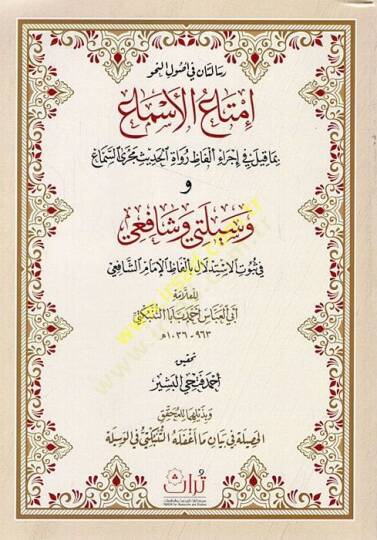 رسالتان في أصول النحو
إمتاع الأسماع
بما قيل في إجراء ألفاظ رواة الحديث مجرى السماع
و
وسيلتي وشافعي
في ثبوت الاستدلال بألفاظ الإمام الشافعي
للعلامة
أبي العباس أحمد بابا التنبكتي
٩٦٣ - ١٠٣٦ هـ
تحقيق
أحمد فتحي البشير
وبذيلها للمحقق
الحصيلة في بيان ما أغفله التنبكتي في الوسيلة
تراث